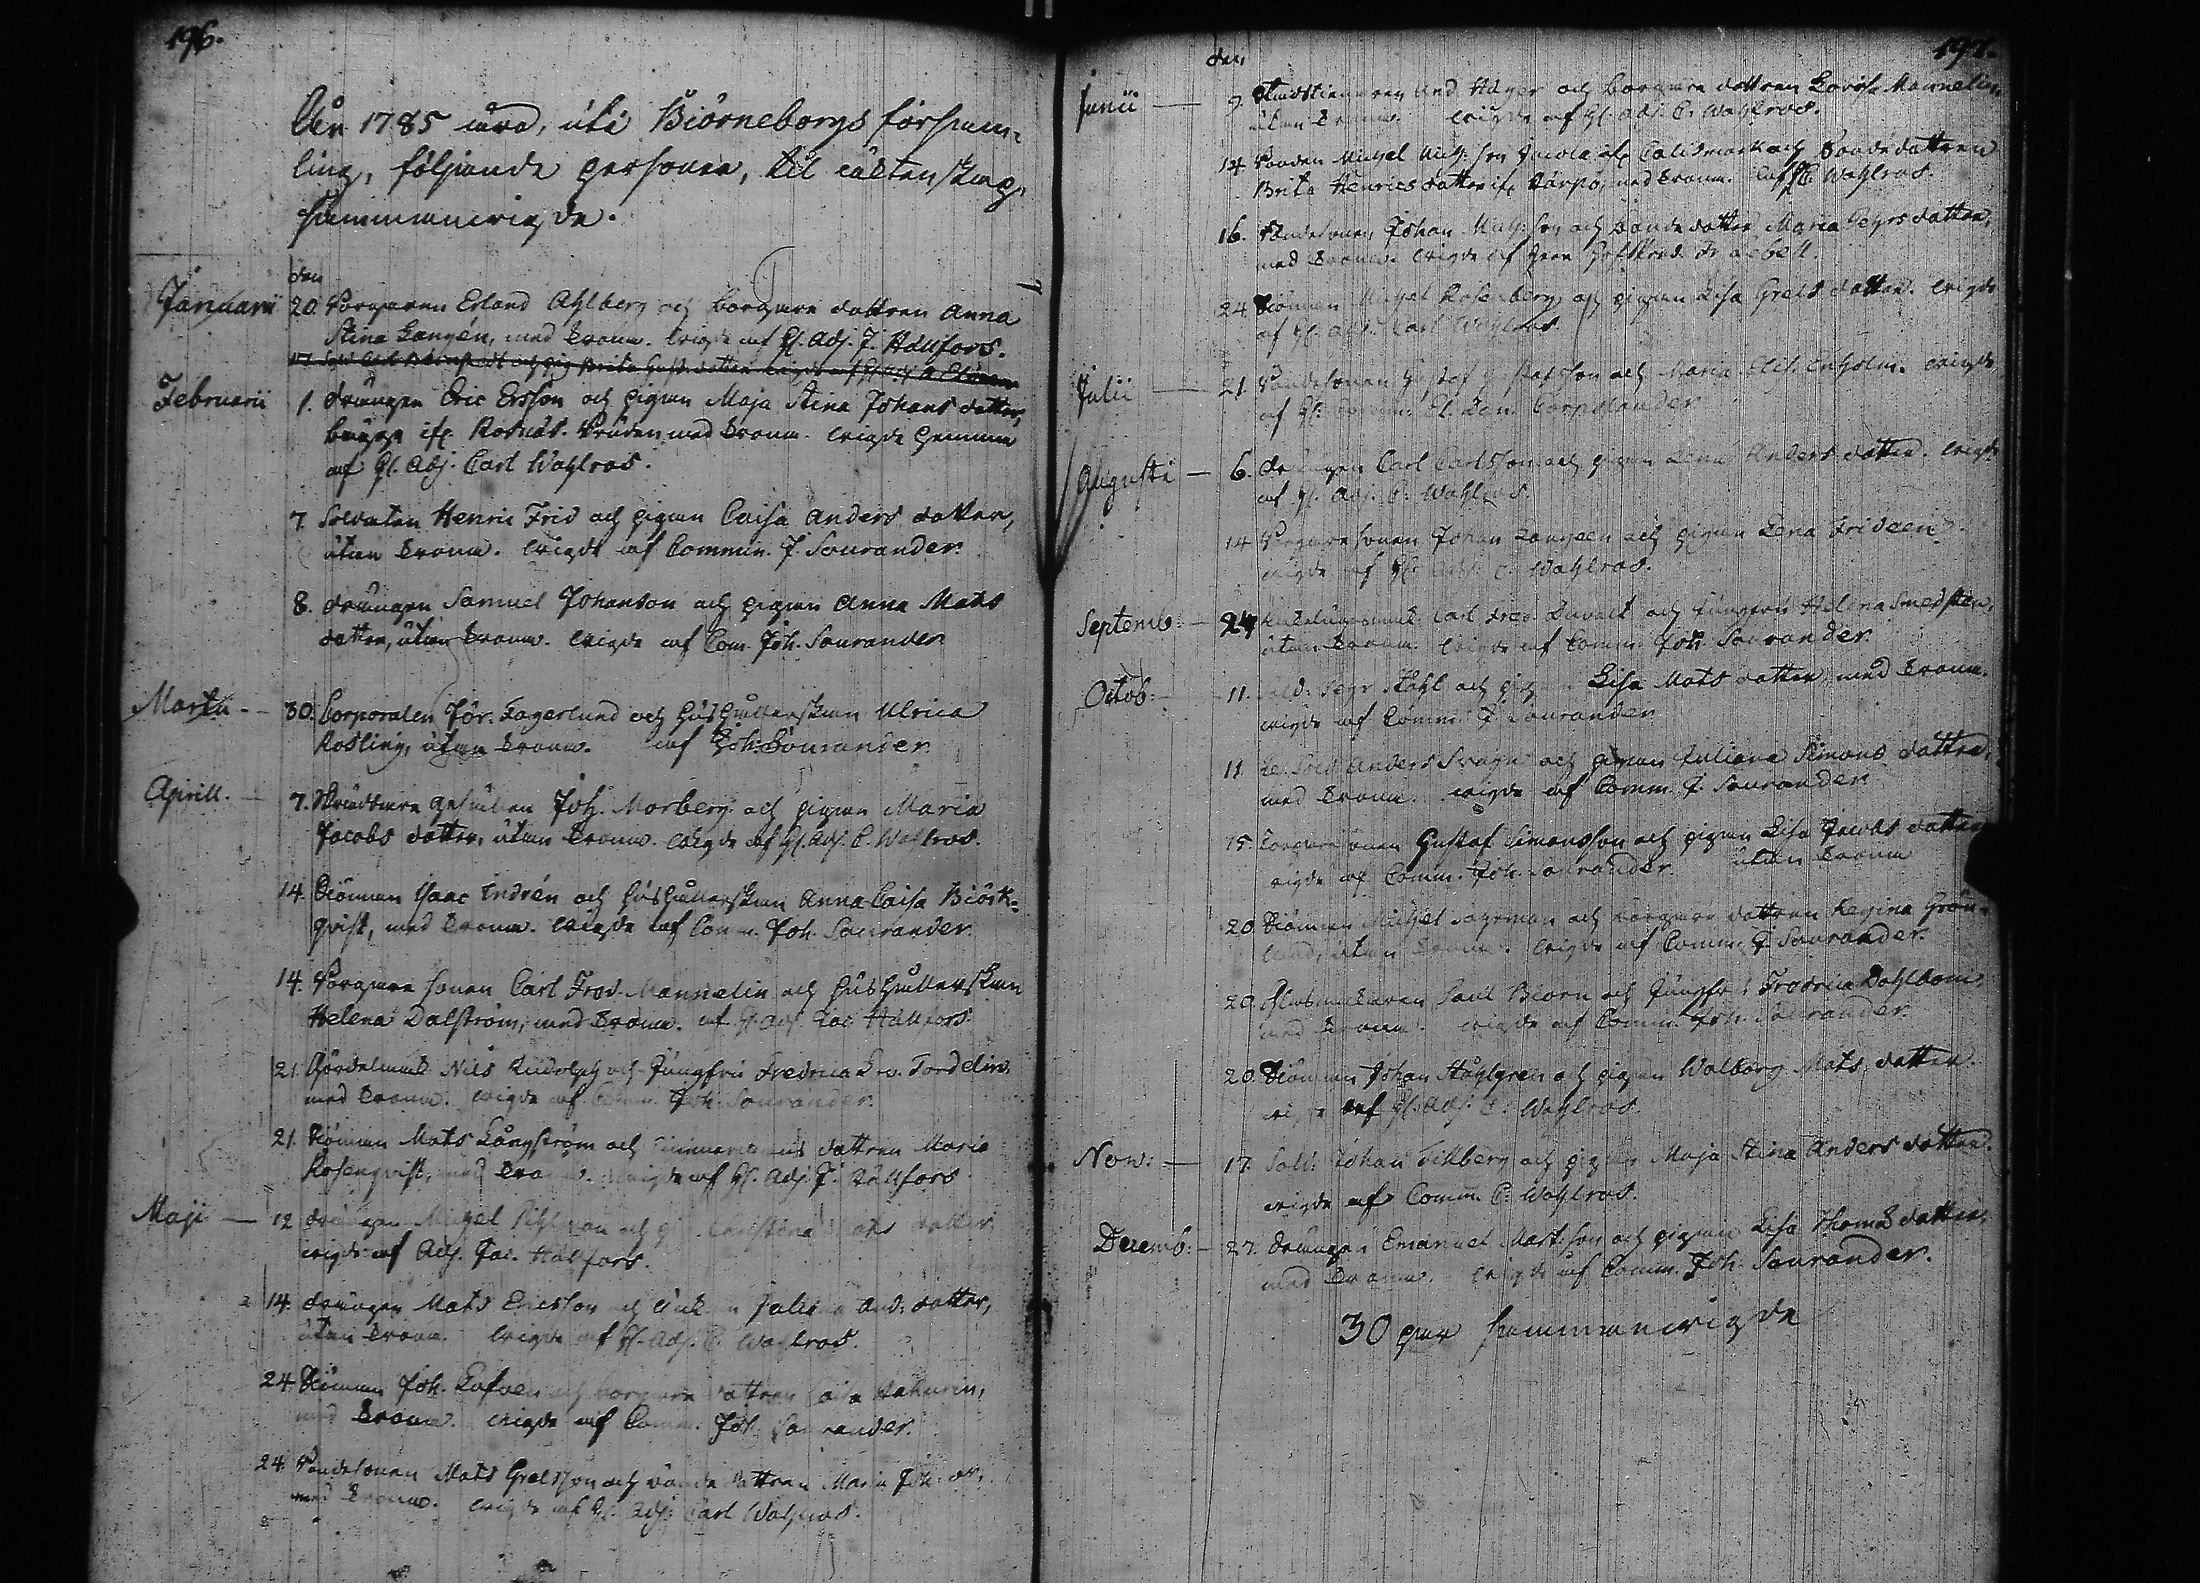 196.
Åhr 1785 äro, uti Biörneborgs församb-
ling, följande personer, til äcktenskap
sammanvigde.
den
Januarii 20. Borgaren Erland Ahlberg och borgare dottren Anna
Stina Langén, med Krona. Vigde af Hr. Adj. J. Hällfors.
Februarii 1. Drängen Eric Ersson och pigan Maja Stina Johans dotter,
begge ifr. Rosnäs. Bruden med Krona. Vigde hemma
af Hr. Adj. Carl Wahlroos.
7. Soldaten Henric Frid och pigan Caisa Anders dotter,
utan Krona. Vigde af Commin. J. Sourander.
8. Drängen Samuel Johanson och pigan Anna Mats
dotter, utan Krona. Vigde af Com. Joh. Sourander
Martii - 30. Corporalen Jör. Fagerlund och hushållerskan Ulrica
Rosling, utan Krona. af Joh. Sourander
Aprill. - 7. gesällen Joh. Morberg och pigan Maria
Jacobs dotter, utan Krona. Vigde af Hr. Adj. C. Wahlroos.
14. Siöman Isaac Indrén och hushållerskan Anna Caisa Biörk-
qvist, med Krona. Vigde af Comm. Joh. Sourander
14. Borgare sonen Carl Fred. Mannelin och hushållerskan
Helena Dalström, med Krona. af Hr. Adj. Jac. Hällfors.
21. Nils Rudolph och Jungfru Fredrica Tordelin,
med Krona. Vigde af Comm. Joh. Sourander.
21. Siöman Mats Långström och dottren Maria
Rosenqvist, med Krona. Vigde af Hr. Adj. J. Hällfors
Maji - 12 drängen Michel och pig. Christina Mats dotter.
Vigde af Adj. Jac. Hällfors.
14. drängen Mats Ericsson och And: dotter,
utan Krona. Vigde af Hr. Adj. C. Wahlroos.
24. Siöman Joh. och borgare dottren Caisa
med Krona. Vigde af Comm. Joh. Sourander.
24. Bondesonen Mats Grelsson och bonde dottren Maria Joh. dr,
med Krona. Vigde af Hr. Adj. Carl Wahlroos.
197.
den
Junii - 9. And. Häger och borgare dottren Lovisa Mannelin,
utan Krona. Vigde af Hr. Adj. C. Wahlroos.
14. Bonden Michel Mich: son ifr. och Bondedottren
Brita Henrics dotter ifr. med Krona. af C. Wahlroos.
16. Bondesonen Johan Mich: son och bonde dotter Maria dotter,
med Krona. Vigde af Herr
24 Siöman Michel Rosenberg och pigan Lisa Grels dotter. Vigde
af Hr. Adj. Carl Wahlroos
Julii - 21. Bondesonen Gustaf Gustafsson och Maria Elis. Enholm. Vigde
af Hr.
Augusti - 6. drängen Carl Carlsson och pigan Lena Anders dotter. Vigde
af Hr. Adj. C. Wahlroos.
14 Borgare sonen Johan Langeen och pigan Lena Frideen
Vigde af Hr. Adj. C. Wahlroos.
Septemb: - 24 Carl Fred. och Jungfru Helena
utan Krona. Vigde af Comm. Joh. Sourander
Octob: - 11. Sold. Ståhl och pigan Lisa Mats dotter, med Krona.
Vigde af Comm. J. Sourander
11. Anders och pigan Juliana Simons dotter,
med Krona. Vigde af Comm. J. Sourander
15. Borgare sonen Gustaf Simonsson och pigan Lisa Jacobs dotter
utan Krona
vigde af Comm. Joh. Sourander.
20. Siöman Michel Sagrman och borgare dottren Regina Grön-
lund, utan Krona. Vigde af Comm. J. Sourander.
20. Glasmakaren Paul Biörn och Jungfr: Fredrica Dahlbom,
med Krona. Vigde af Comm. Joh. Sourander.
20. Siöman Johan Ståhlgren och pigan Walborg Mats dotter.
Vigde af Hr. Adj. C. Wahlroos.
Nov: - 17. Sold: Johan och pigan Maja Stina Anders dotter.
Vigde af Comm. C. Wahlroos.
Decemb: - 27. Drängen Emanuel Matt: son och pigan Lisa Thomas dotter,
med Krona. Vigde af Comm. Joh. Sourander.
30 par sammanvigde